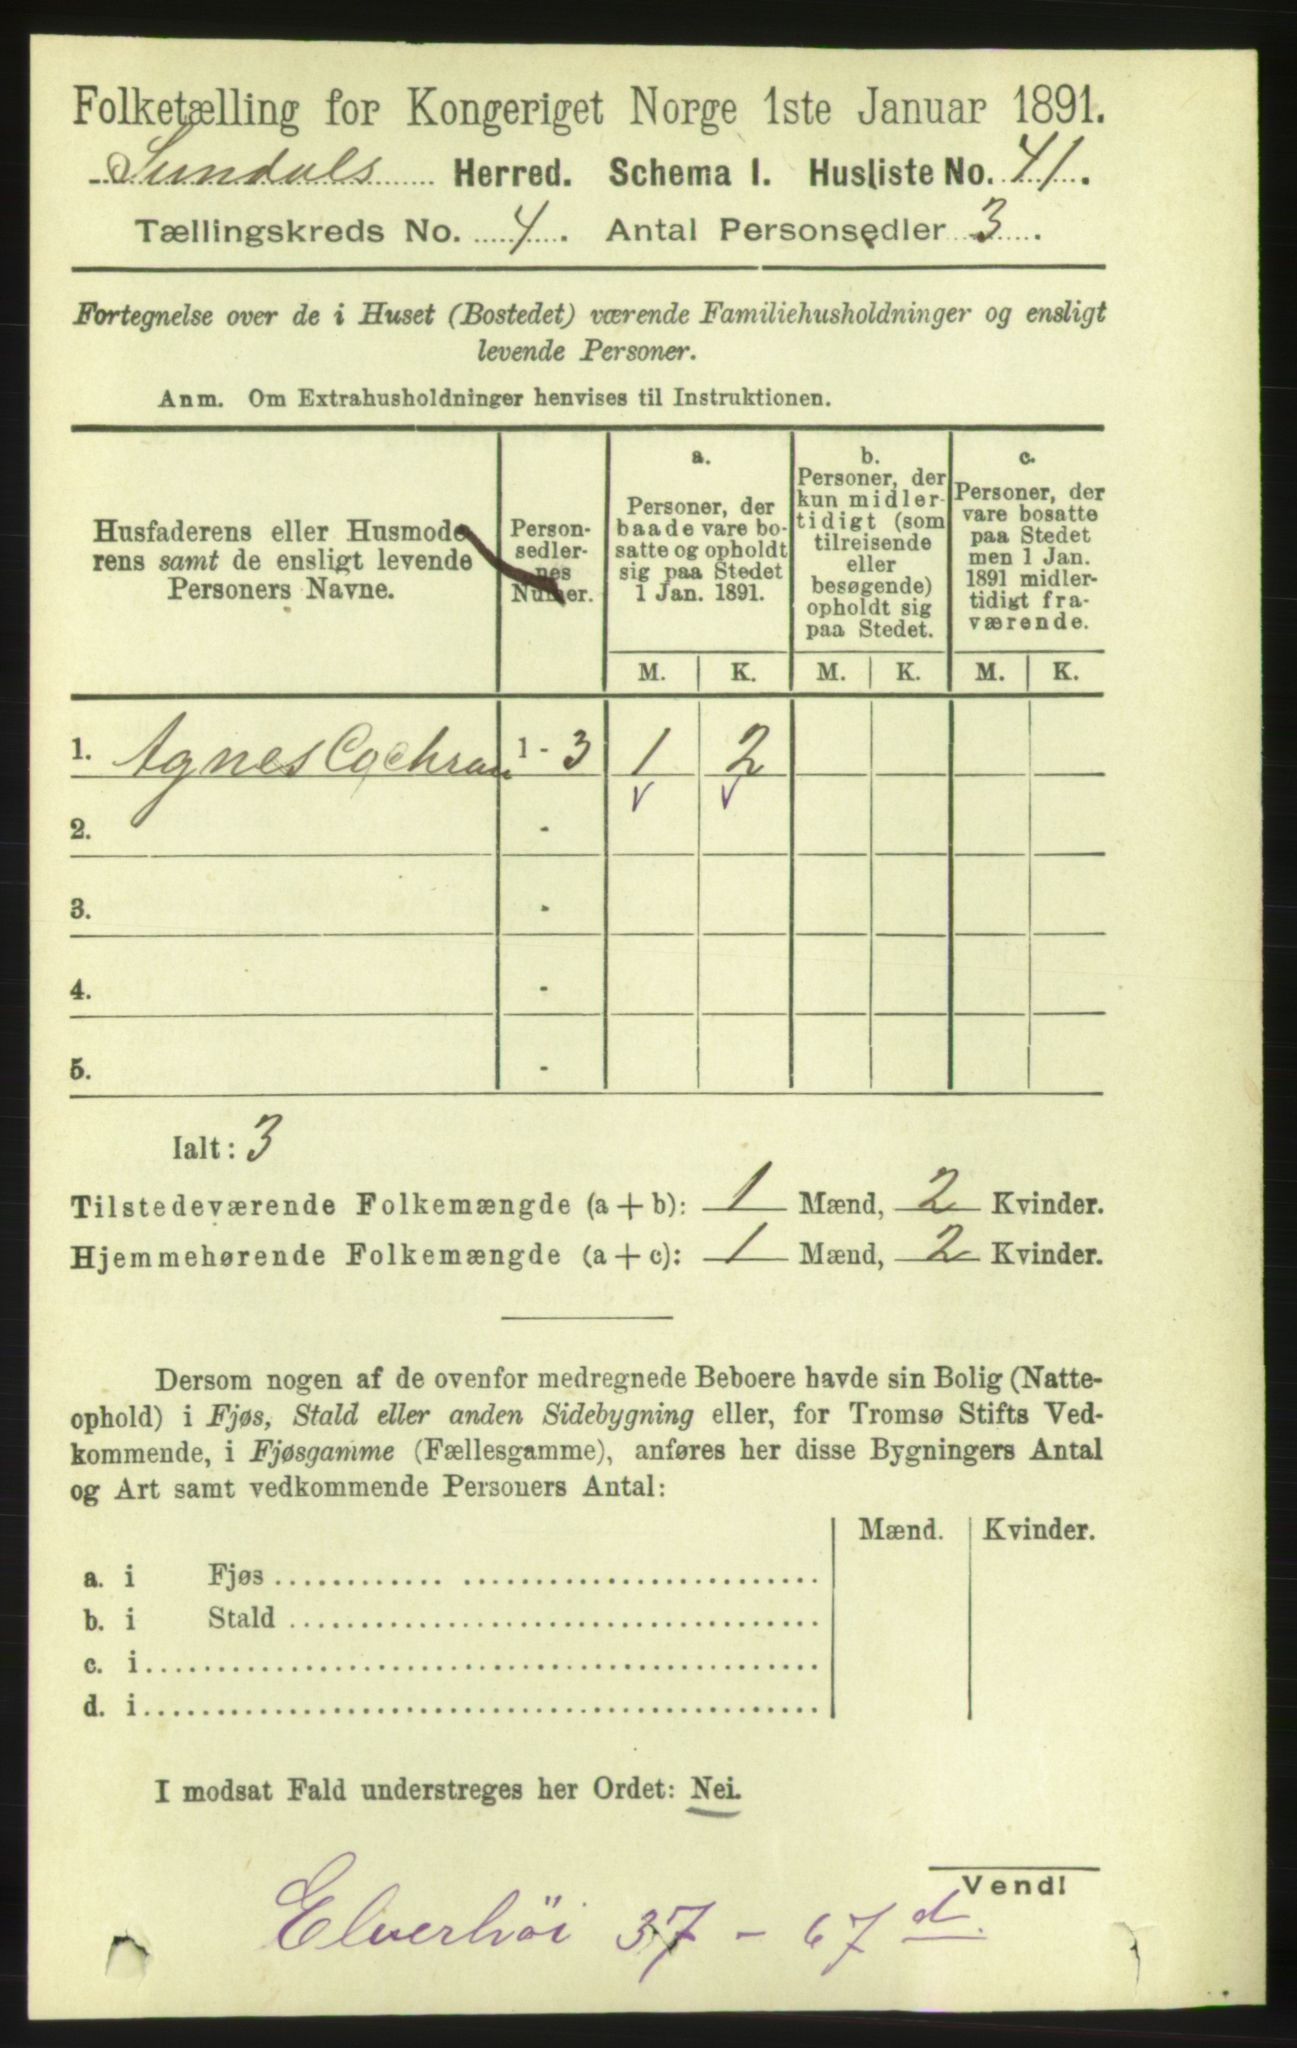 Folketælling for Kongeriget Norge 1ste Januar 1891.
Sundals Herred. Schema I. Husliste No. 41.
Tællingskreds No. 4. Antal Personsedler 3.
Fortegnelse over de i Huset (Bostedet) værende Familiehusholdninger og ensligt
levende Personer.
Anm. Om Extrahusholdninger henvises til Instruktionen.
Husfaderens eller Husmode
rens samt de ensligt levende
Personers Navne.
Person-
sedler-
nes
Numer.
a.
Personer, der
baade vare bo-
satte og opholdt
sig paa Stedet
1 Jan. 1891.
b.
Personer, der
kun midler-
tidigt (som
tilreisende
eller
besøgende)
opholdt sig
paa Stedet.
c.
Personer, der
vare bosatte
paa Stedet
men 1 Jan.
1891 midler-
tidigt fra-
værende.
M. K. M. K. M. K.
1. Agnes Cochran 1 - 3 1 2
2. -
3. -
4. -
5. -
Ialt: 3
Tilstedeværende Folkemængde (a + b): 1 Mænd, 2 Kvinder.
Hjemmehørende Folkemængde (a + c): 1 Mænd, 2 Kvinder.
Dersom nogen af de ovenfor medregnede Beboere havde sin Bolig (Natte-
ophold) i Fjøs, Stald eller anden Sidebygning eller, for Tromsø Stifts Ved-
kommende, i Fjøsgamme (Fællesgamme), anføres her disse Bygningers Antal
og Art samt vedkommende Personers Antal:
Mænd. Kvinder.
a. i Fjøs
b. i Stald
c. i
d. i
I modsat Fald understreges her Ordet: Nei.
Vend!
Elverhöi 37 - 67 d.